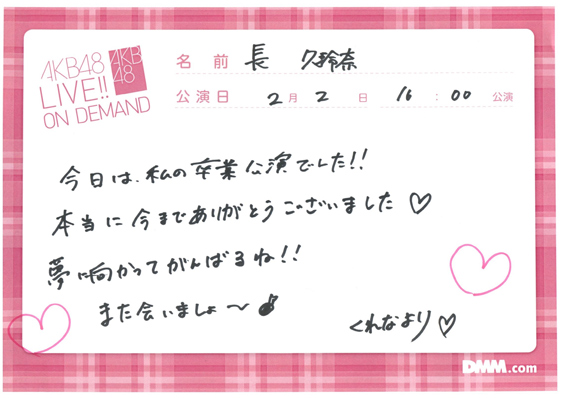 AKB48
LIVE!!
ON DEMAND
AKB
48
名前 長 久玲奈
公演日 2月2日 16:00 公演
今日は、私の卒業公演でした!!
本当に今までありがとうございました♡
夢に向かってがんばるね!!
また会いましょ〜♪
くれなより♡
DMM.com